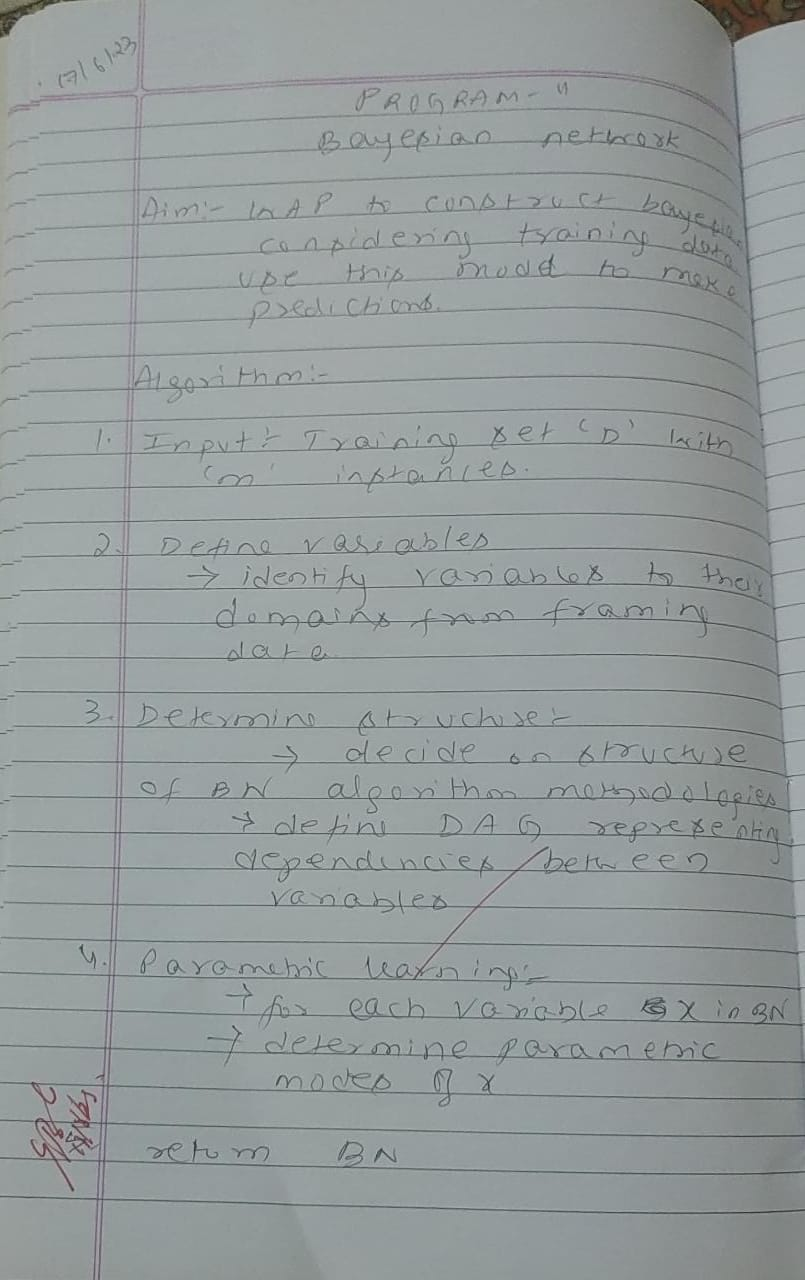 17/6/23
PROGRAM- 11
Bayesian network
Aim:- WAP to construct bayesia
considering training data
use this model to make
predictions.
Algorithm:-
1. Input:- Training set 'D' with
'm' instances.
2. Define variables
→ identify variables to their
domains from framing
data
3. Determine structure:-
→ decide on structure
of BN algorithm methodologies
→ define DAG representing
dependencies between
variables
4. Parametric learning:-
→ for each variable X in BN
→ determine parametric
modes of X
return BN